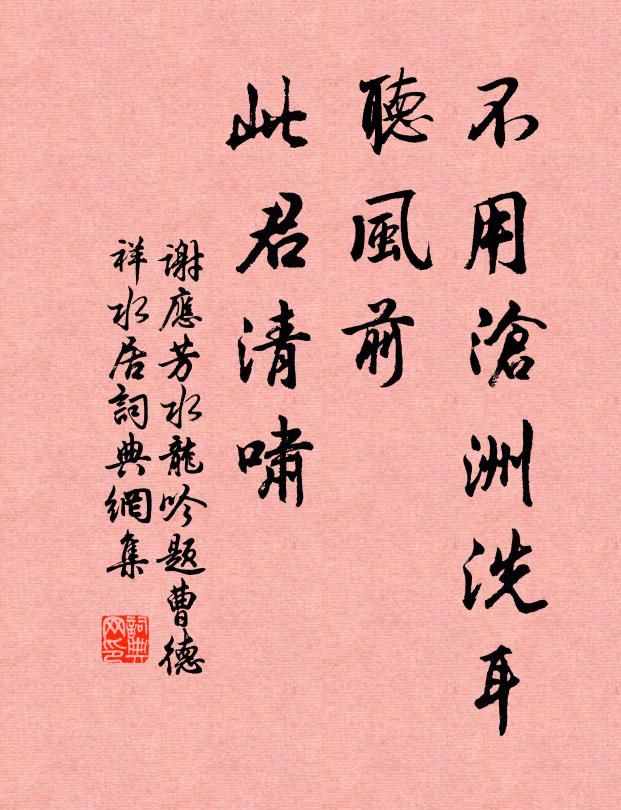 不用滄洲洗耳
聽風前
此君清嘯
謝應芳水龍吟题曹德
祥水居詞典網集
詞典
网印